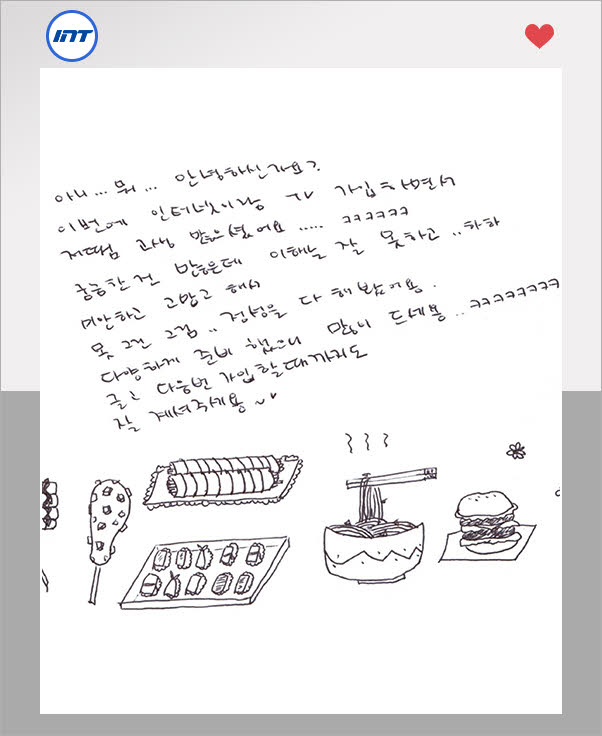 INT
아니... 뭐... 안녕하신가요?
이번에 인터넷이랑 TV 가입하면서
저땜 고생 많으셨어요 ..... ㅋㅋㅋㅋㅋㅋ
궁금한건 많은데 이해는 잘 못하고 ..하하
미안하고 고맙고 해서
못 그린 그림.. 정성을 다 해봤어용.
다양하게 준비 했으니 많이 드세용..ㅋㅋㅋㅋㅋㅋㅋㅋ
글고 다음번 가입할때까지도
잘 계셔주세용~